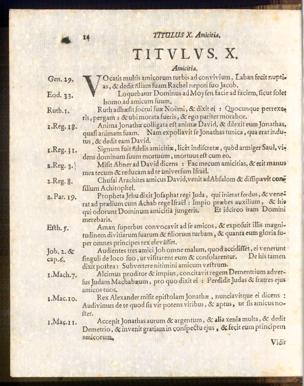 14 TITULUS X. Amicitia.
TITVLVS. X.
Amicitia.
Gen. 29. VOcatis multis amicorum turbis ad convivium, Laban fecit nuptias, & dedit filiam suam Rachel nepoti suo Jacob.
Exod. 33. Loquebatur Dominus ad Moysen facie ad faciem, sicut solet
homo ad amicum suum.
Ruth. 1. Ruth adhæsit socrui suæ Noëmi, & dixit ei: Quocunque perrexeris, pergam: & ubi morata fueris, & ego pariter morabor.
1. Reg. 18. Anima Jonathæ colligata est animæ David, & dilexit eum Jonathas,
quasi animam suam. Nam expoliavit se Jonathas tunica, qua erat indutus, & dedit eam David.
1. Reg. 31. Signum fuit fidelis amicitiæ, licet indiscretæ, quòd armiger Saul, videns dominum suum mortuum, mortuus est cum eo.
2. Reg. 3. Misit Abner ad David dicens: Fac mecum amicitias, & erit manus
mea tecum & reducam ad te universum Israël.
2. Reg. 8. Chusai Arachites amicus David, venit ad Absalom & dissipavit consilium Achitophel.
2. Par. 19. Propheta Jehu dixit Josaphat regi Juda, qui inierat fœdus, & venerat ad prælium cum Achab rege Israël: Impio præbes auxilium, & his
qui oderunt Dominum amicitiâ jungeris. Et idcirco iram Domini
merebaris.
Esth. 5. Aman superbus convocavit ad se amicos, & exposuit illis magnitudinem divitiarum suarum & filiorum turbam, & quanta eum gloria super omnes principes rex elevasset.
Job. 2. &
cap. 6. Audientes tres amici Job omne malum, quod accidisset, ei venerunt
singuli de loco suo, ut visitarent eum & consolarentur. De his tamen
dixit postea: Subvertere nitimini amicum vestrum.
1. Mach. 7. Alcimus proditor & impius, concitavit regem Demetrium adversus Judam Machabæum, pro quo dixit ei: Perdidit Judas & fratres ejus
amicos tuos.
1. Mac. 10. Rex Alexander misit epistolam Jonathæ, nunciavitque ei dicens:
Audivimus de te quod sis vir potens viribus, & aptus, ut sis amicus noster.
1. Mac. 11. Accepit Jonathas aurum & argentum, & alia xenia multa, & dedit
Demetrio, & invenit gratiam in conspectu ejus, & fecit eum principem
amicorum.
Vidit